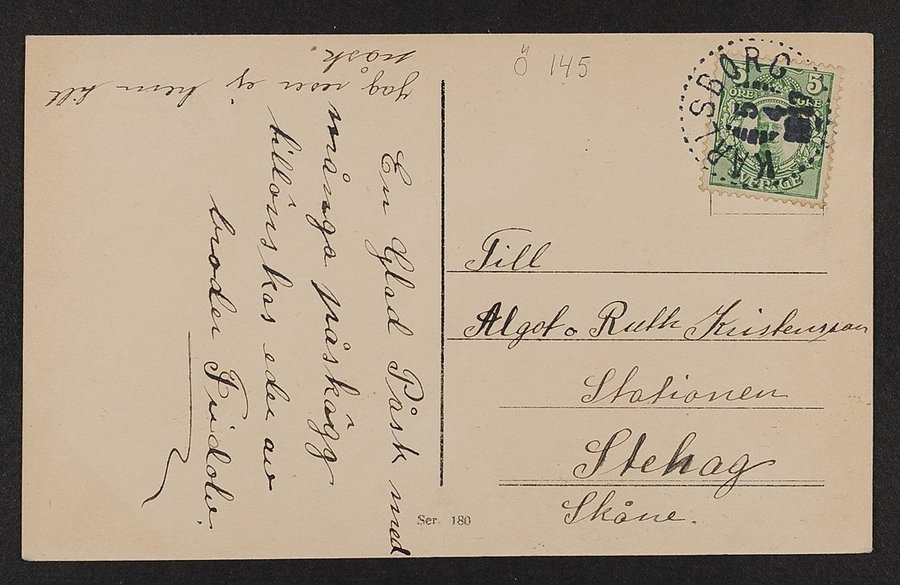 En Glad Påsk med
många påskägg
tillönskas eder av
broder Fridolv.
Jag reser ej hem till
påsk.
Ö 145
KARLSBORG
5
ÖRE
SVERIGE
Till
Algot o Ruth Kristensson
Stationen
Stehag
Skåne.
Ser. 180